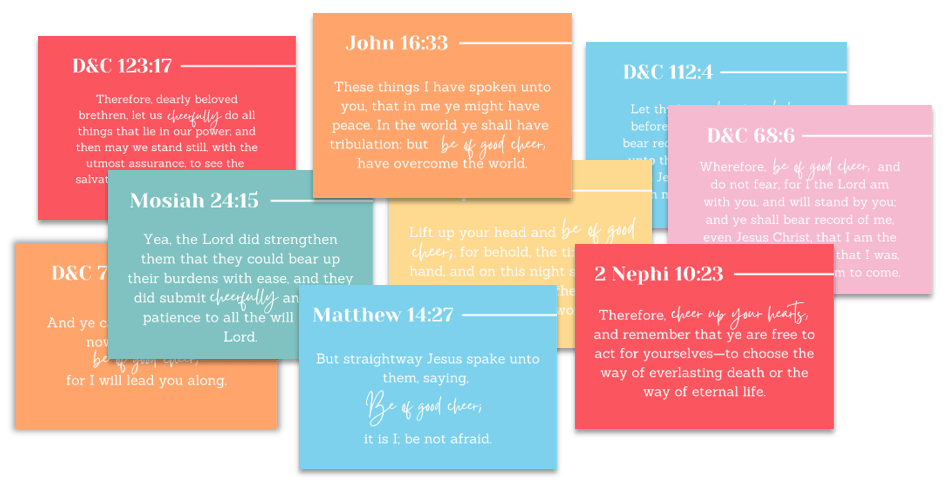 D&C 123:17
Therefore, dearly beloved
brethren, let us cheerfully do all
things that lie in our power; and
then may we stand still, with the
utmost assurance, to see the
John 16:33
These things I have spoken unto
you, that in me ye might have
peace. In the world ye shall have
tribulation: but be of good cheer;
have overcome the world.
D&C 112:4
Let
before
bear
D&C 68:6
Wherefore, be of good cheer, and
do not fear, for I the Lord am
with you, and will stand by you;
and ye shall bear record of me,
even Jesus Christ, that I am the
that I was,
to come.
Mosiah 24:15
Yea, the Lord did strengthen
them that they could bear up
their burdens with ease, and they
did submit cheerfully
patience to all the will
Lord.
Lift up your head and be of good
cheer; for behold, the
hand, and on this night
D&C 7
And ye
be of good cheer,
for I will lead you along.
Matthew 14:27
But straightway Jesus spake unto
them, saying,
Be of good cheer;
it is I; be not afraid.
2 Nephi 10:23
Therefore, cheer up your hearts,
and remember that ye are free to
act for yourselves—to choose the
way of everlasting death or the
way of eternal life.